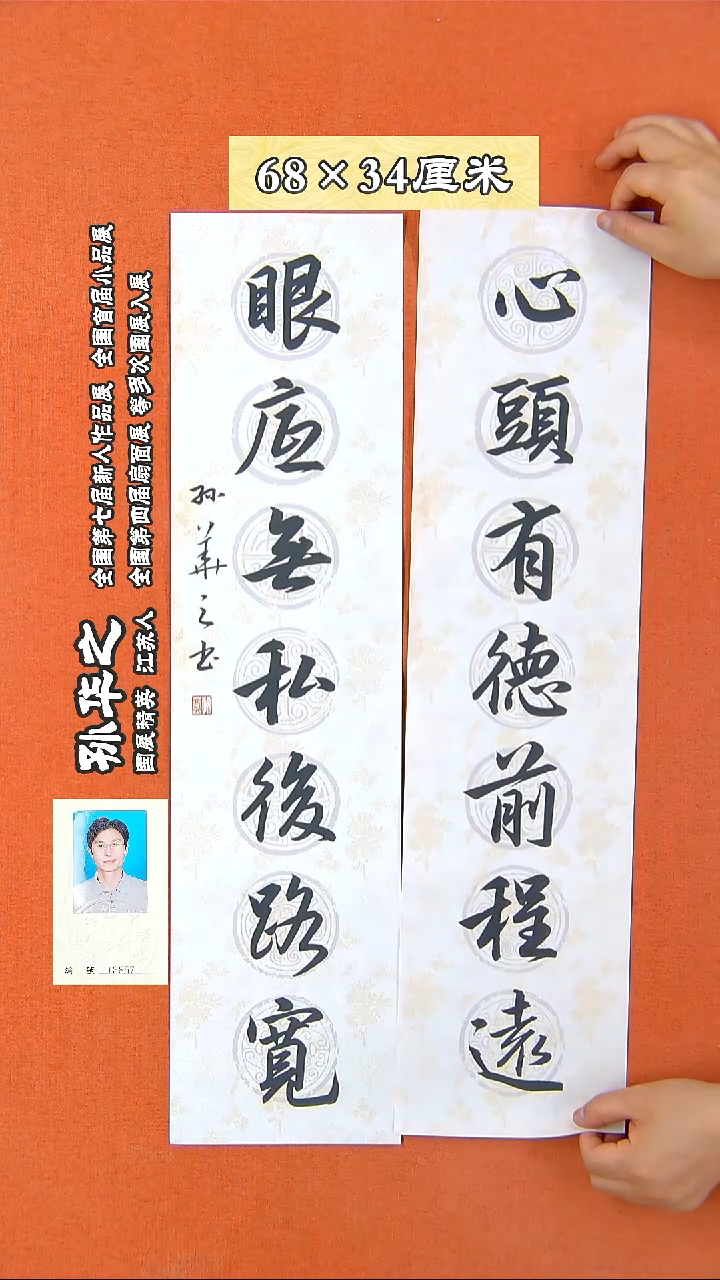 68×34厘米
心頭有德前程遠
眼底無私後路寬
孙華之书
孙华之
国展精英 江苏人
全國第七届新人作品展 全國首届小品展
全國第四届扇面展 等多次國展入展
编號